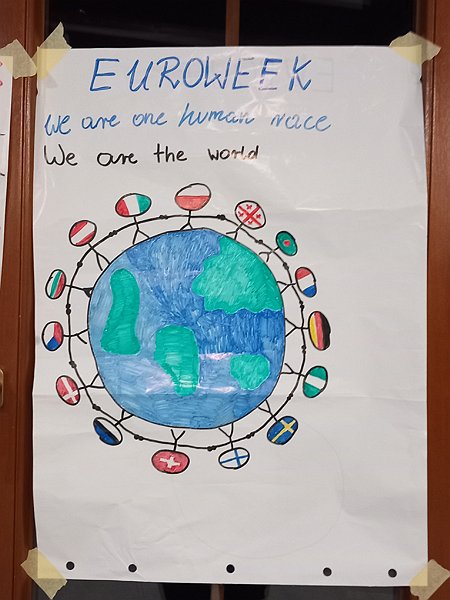 EUROWEEK
We are one human race
We are the world